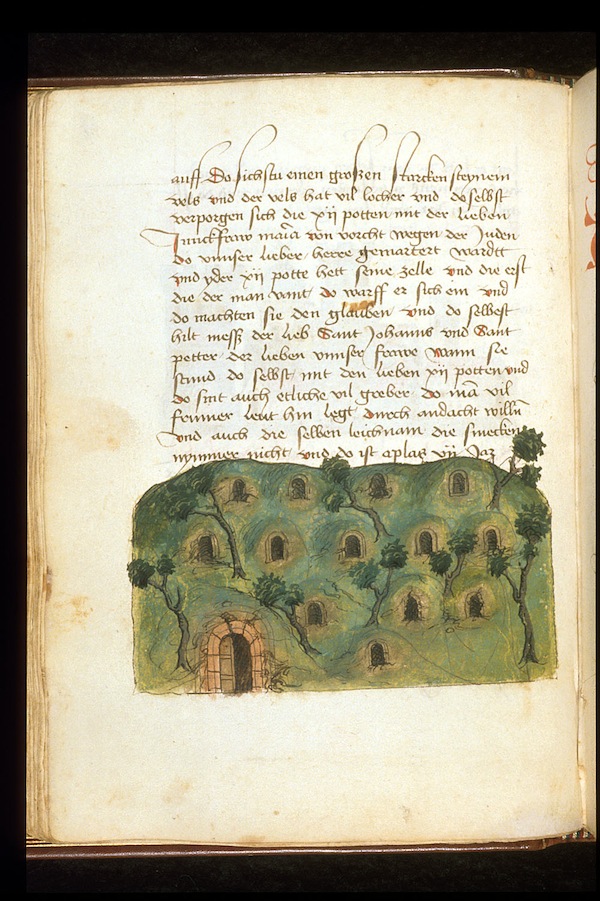 auff Do sichstu einen großen starcken steynein
vels vnd der vels hat vil locher vnd do selbst
verporgen sich die xij potten mit der lieben
Junckfraw maria von vorcht wegen der Juden
do vnnser lieber herre gemartert wardtt
vnd yder xij potte hett seine zelle vnd die erst
die der man vant do warff er sich ein vnd
do machten sie den glauben vnd do selbest
hilt messz der lieb Sant Johanns vnd Sant
petter der lieben vnnser frawe wann sie
stund do selbst mit den lieben xij potten vnd
do sint auch etliche vil greber do mā vil
frumer leut hin legt durch andacht willn
vnd auch die selben leichnam die smecken
nymmer nicht vnd do ist aplas vij Jar